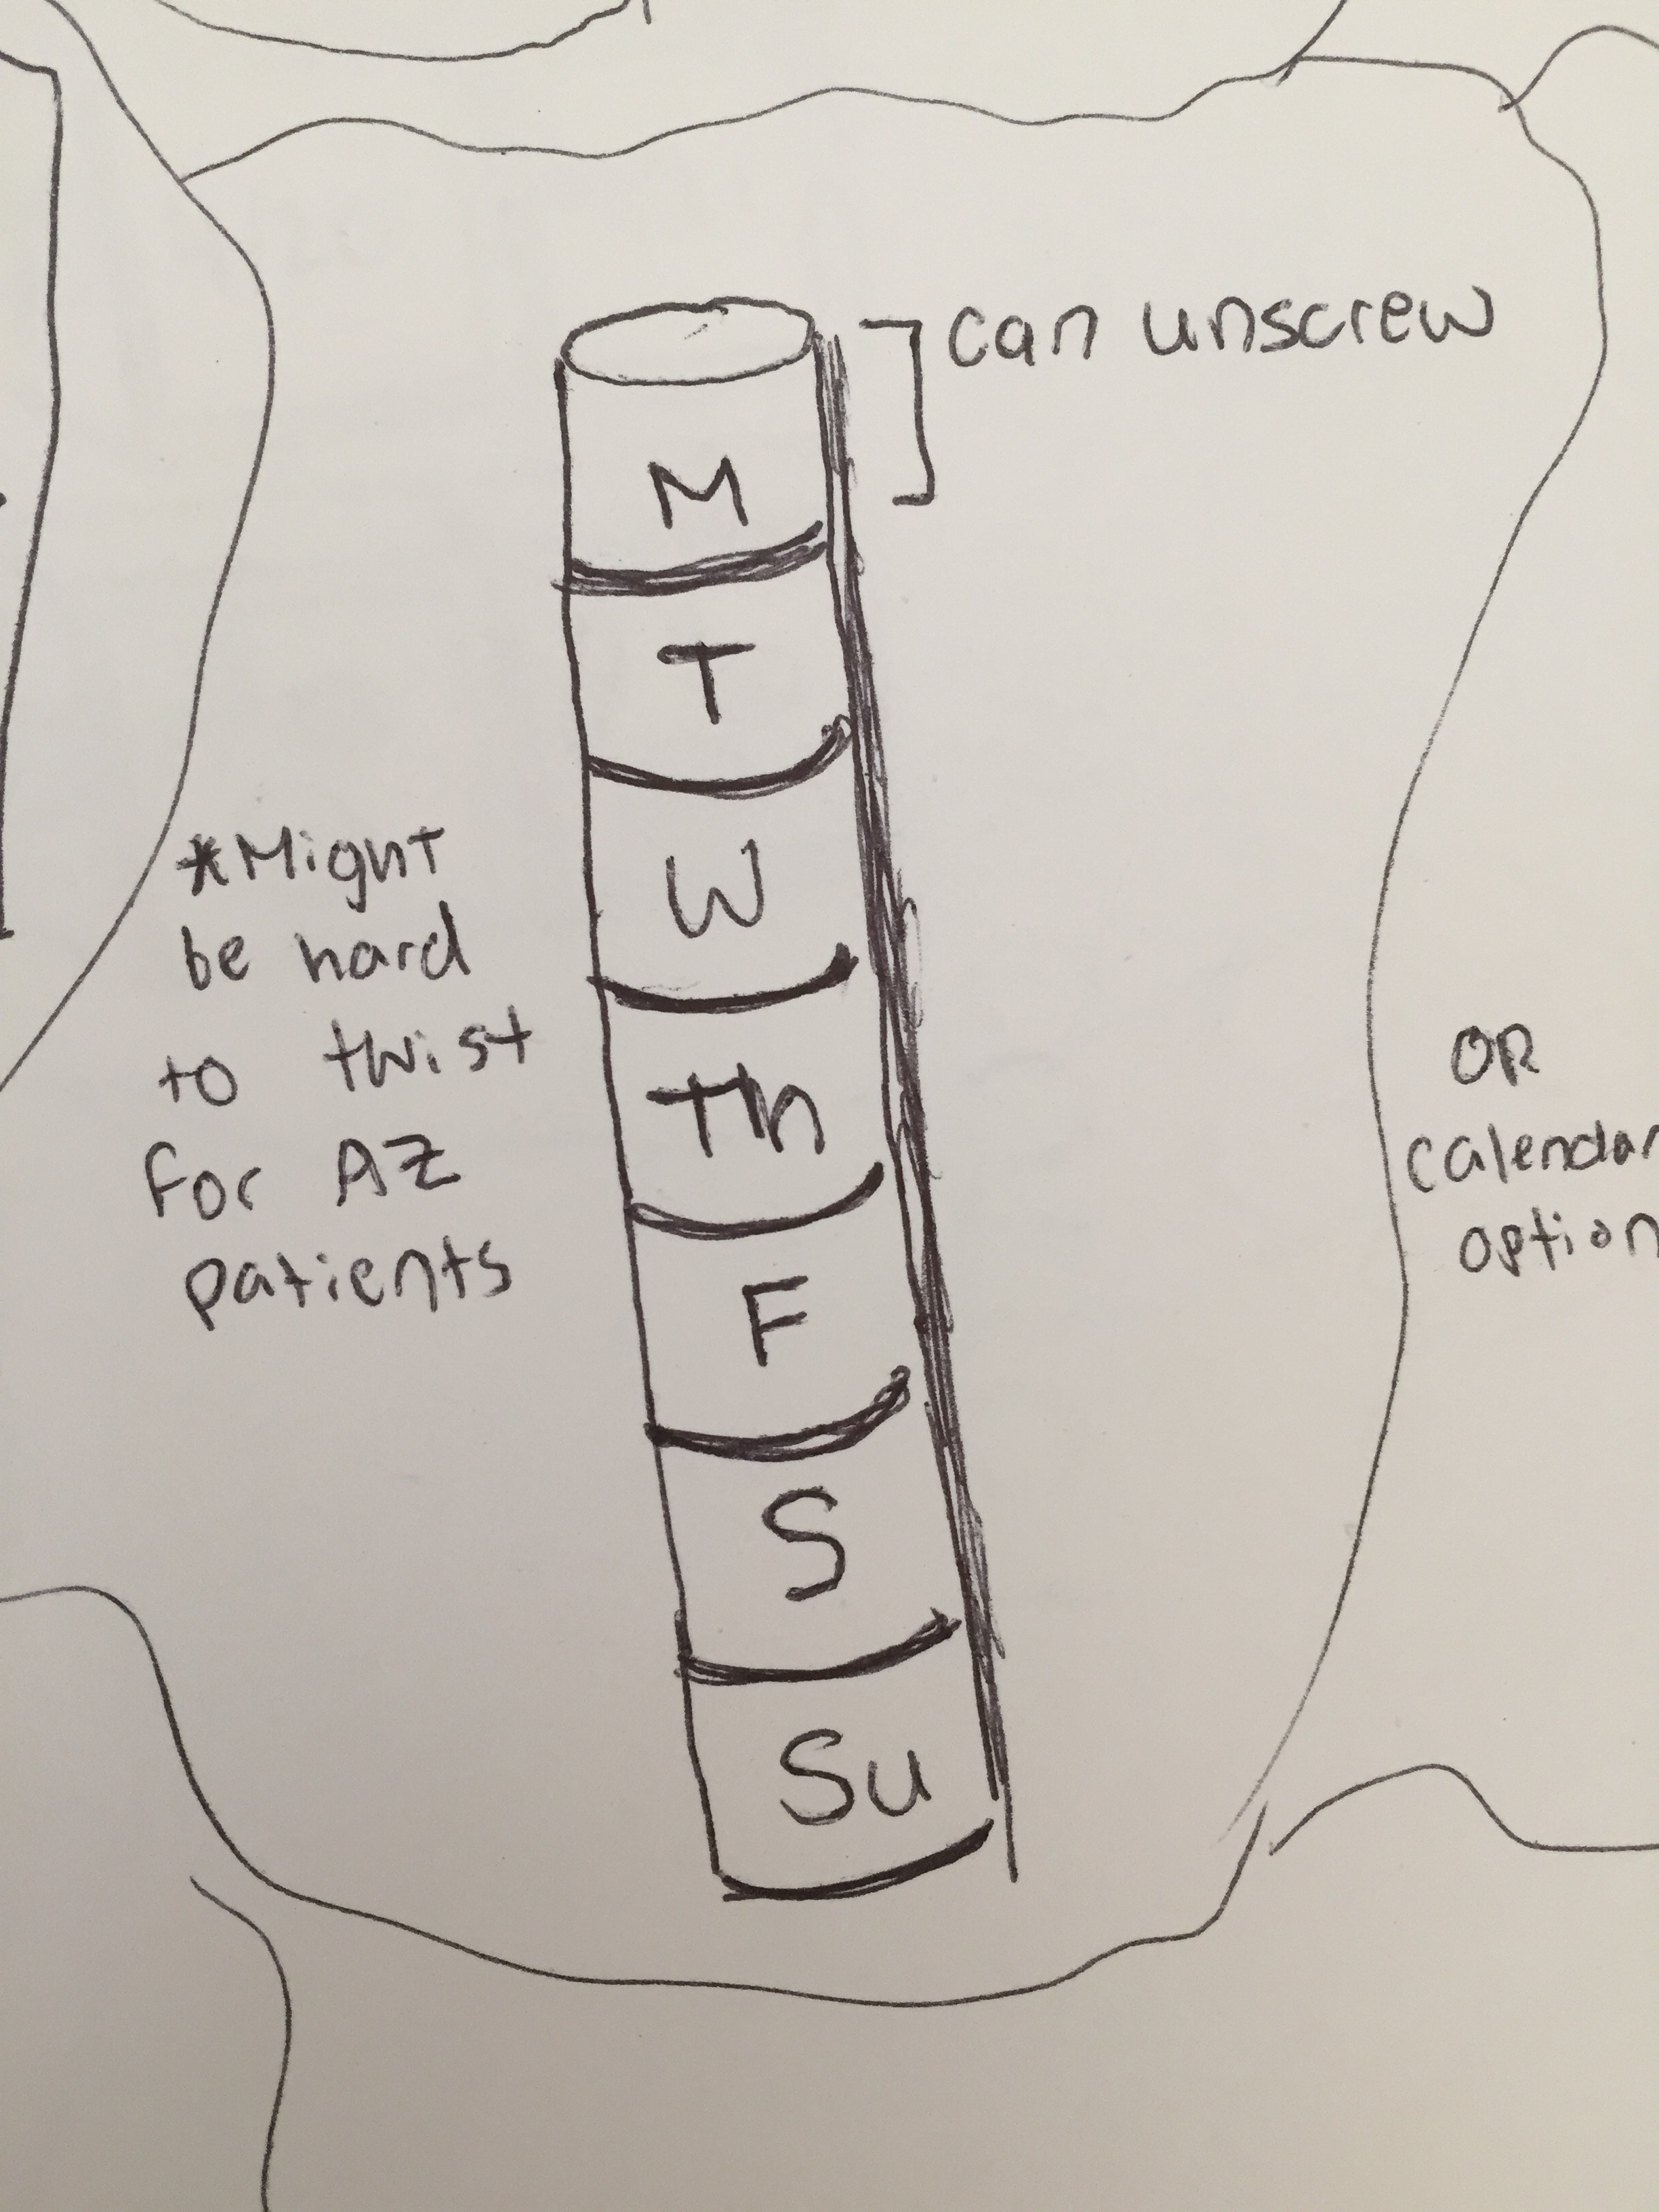 can unscrew
M
T
W
Th
F
S
Su
*Might
be hard
to twist
for AZ
patients
OR
calendar
option